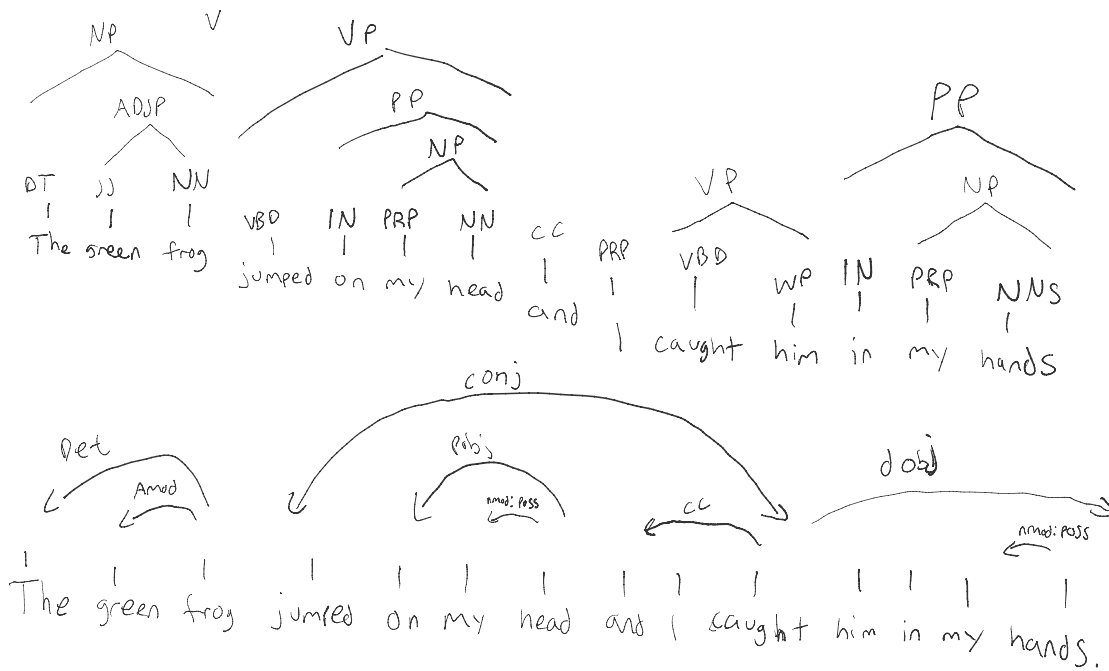 NP V VP
PP PP
ADJP NP
VP NP
DT JJ NN
VBD IN PRP NN CC PRP VBD WP IN PRP NNS
The green frog jumped on my head and I caught him in my hands
conj
Det pobj dobj
Amod nmod:poss cc nmod:poss
The green frog jumped on my head and I caught him in my hands.